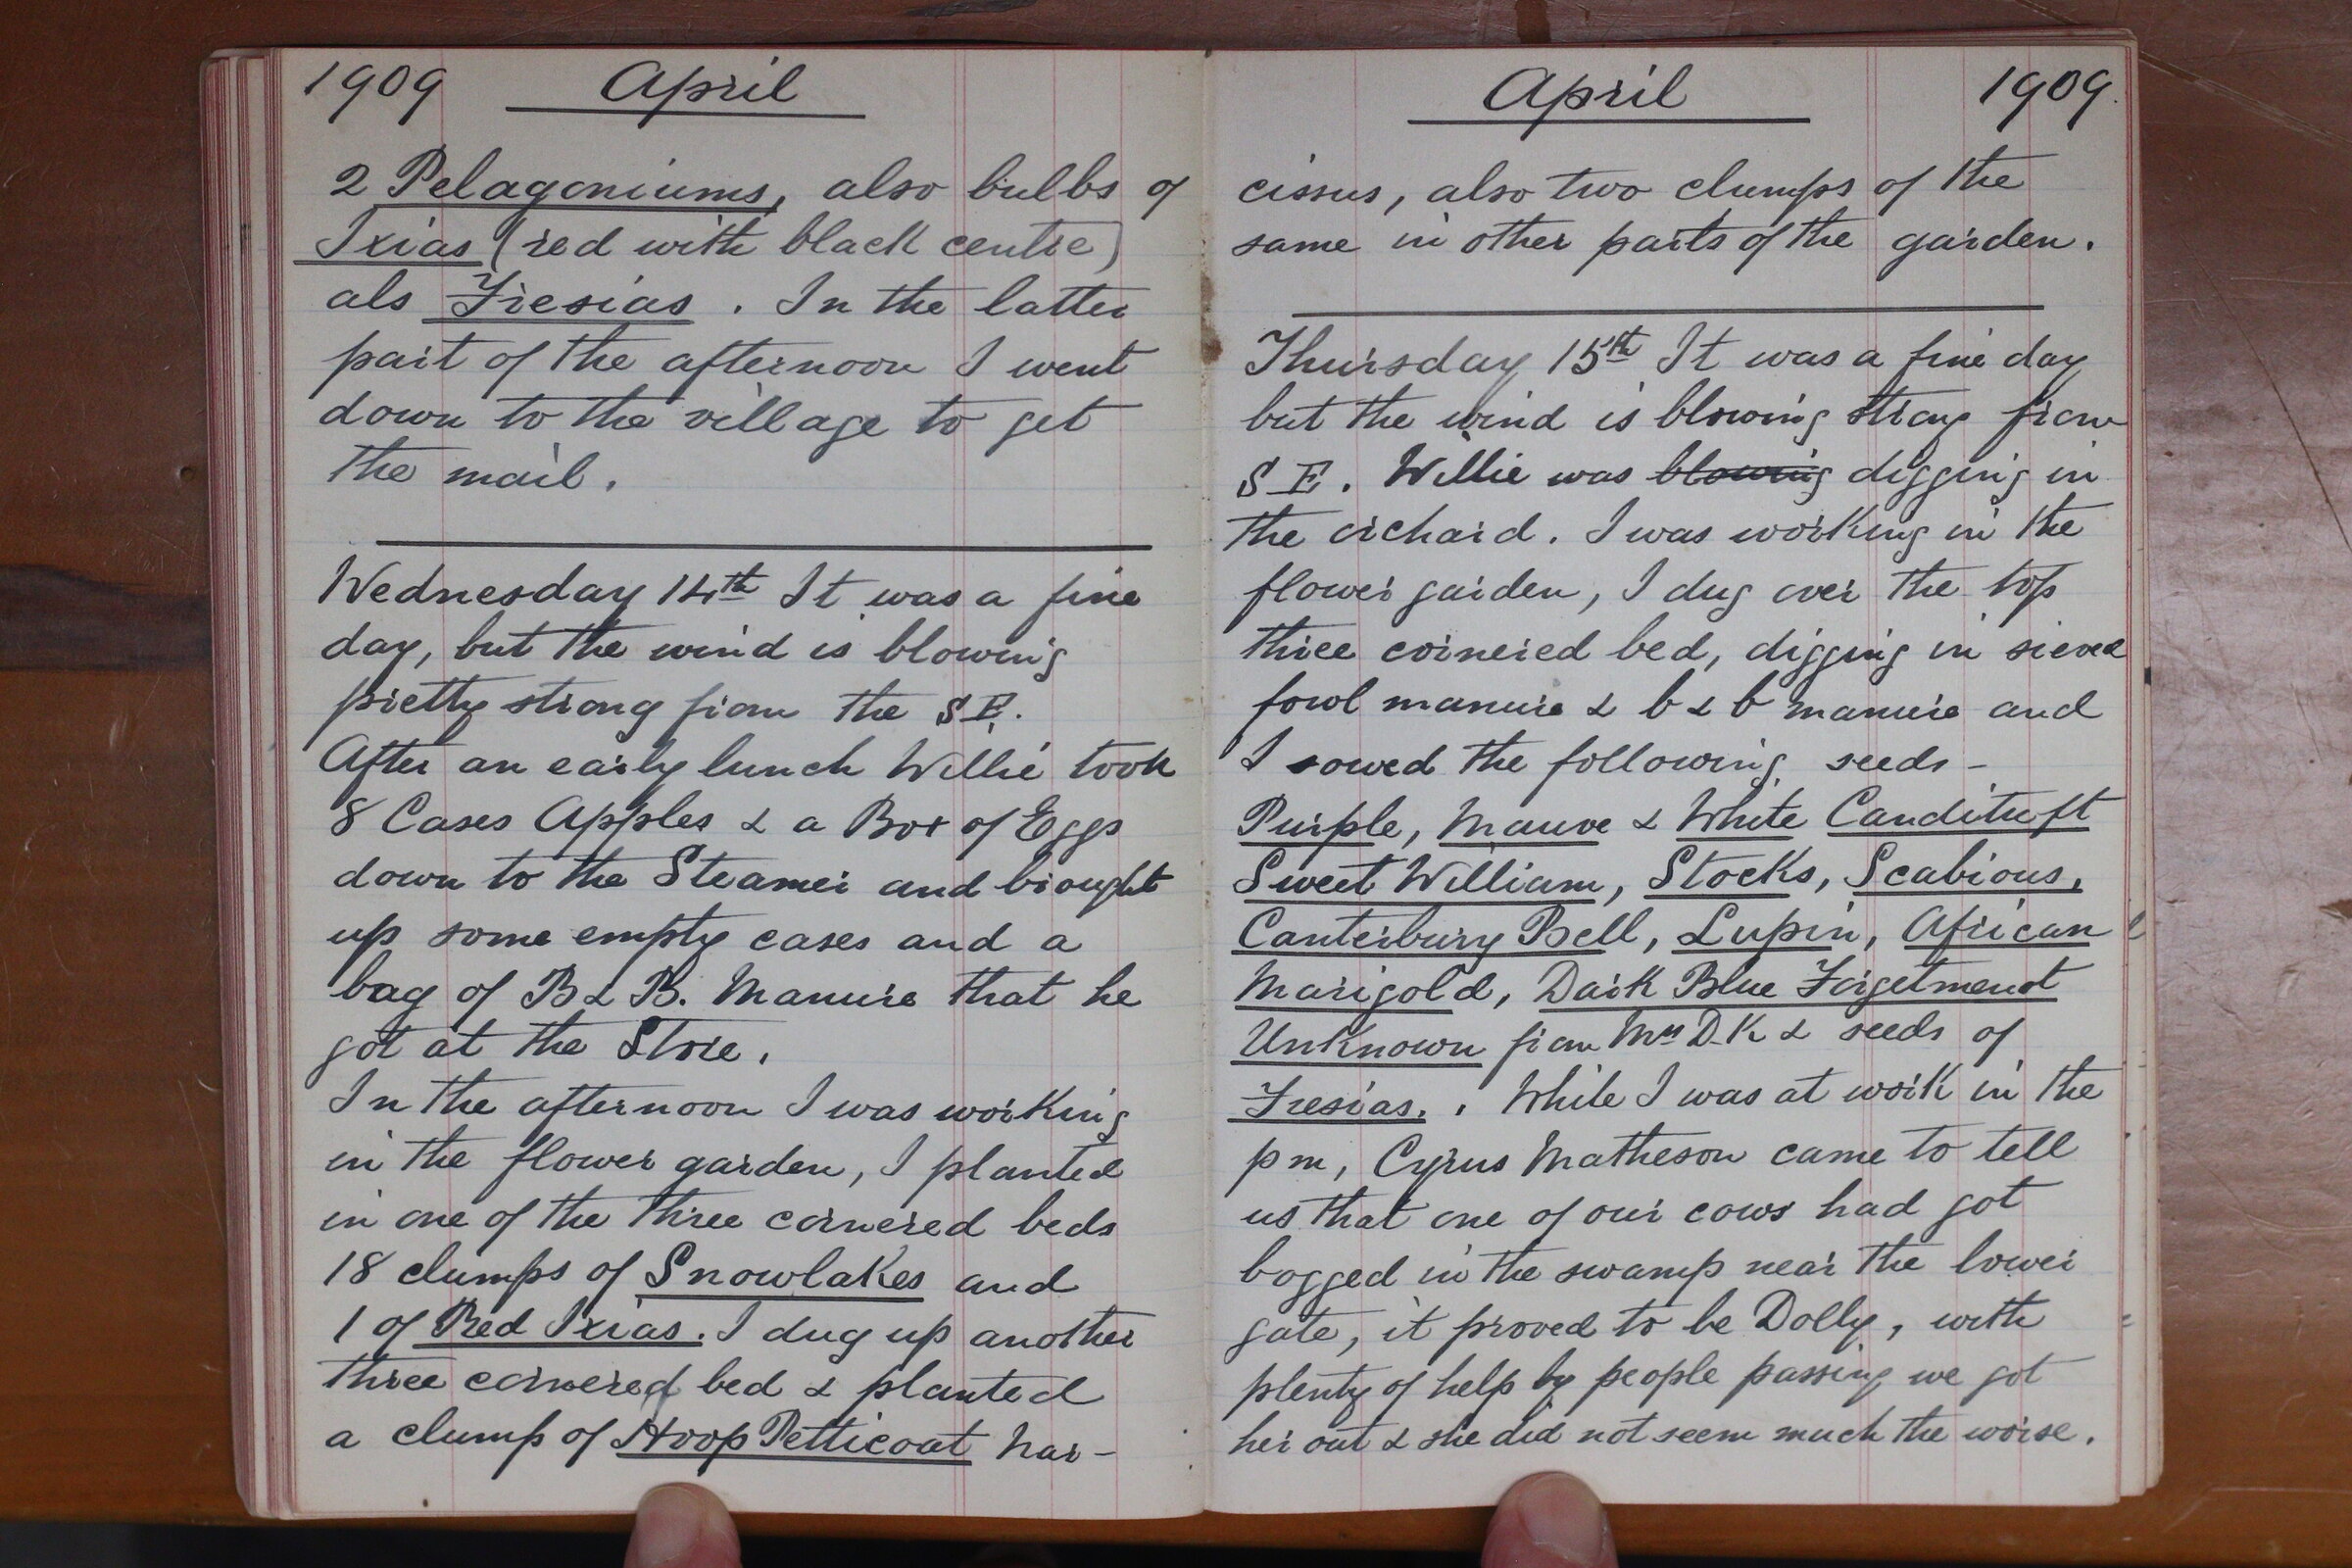 1909 April
2 Pelagoniums, also bulbs of
Ixias (red with black centre)
als Fresias. In the latter
part of the afternoon I went
down to the village to get
the mail.
Wednesday 14th It was a fine
day, but the wind is blowing
pretty strong from the S E.
After an early lunch Willie took
8 Cases Apples & a Box of Eggs
down to the Steamer and brought
up some empty cases and a
bag of B & B. Manure that he
got at the Store.
In the afternoon I was working
in the flower garden, I planted
in one of the three cornered beds
18 clumps of Snowlakes and
1 of Red Ixias. I dug up another
three cornered bed & planted
a clump of Hoop Petticoat nar-
April 1909.
cissus, also two clumps of the
same in other parts of the garden.
Thursday 15th It was a fine day
but the wind is blowing strong from
S E. Willie was blowing digging in
the orchard. I was working in the
flower garden, I dug over the top
three cornered bed, digging in sieved
fowl manure & b & b manure and
I sowed the following seeds -
Purple, Mauve & White Candituft
Sweet William, Stocks, Scabious,
Canterbury Bell, Lupin, African
Marigold, Dark Blue Forgetmenot
Unknown from Mrs D. K & seeds of
Fresias. . While I was at work in the
pm, Cyrus Matheson came to tell
us that one of our cows had got
bogged in the swamp near the lower
gate, it proved to be Dolly, with
plenty of help by people passing we got
her out & she did not seem much the worse.